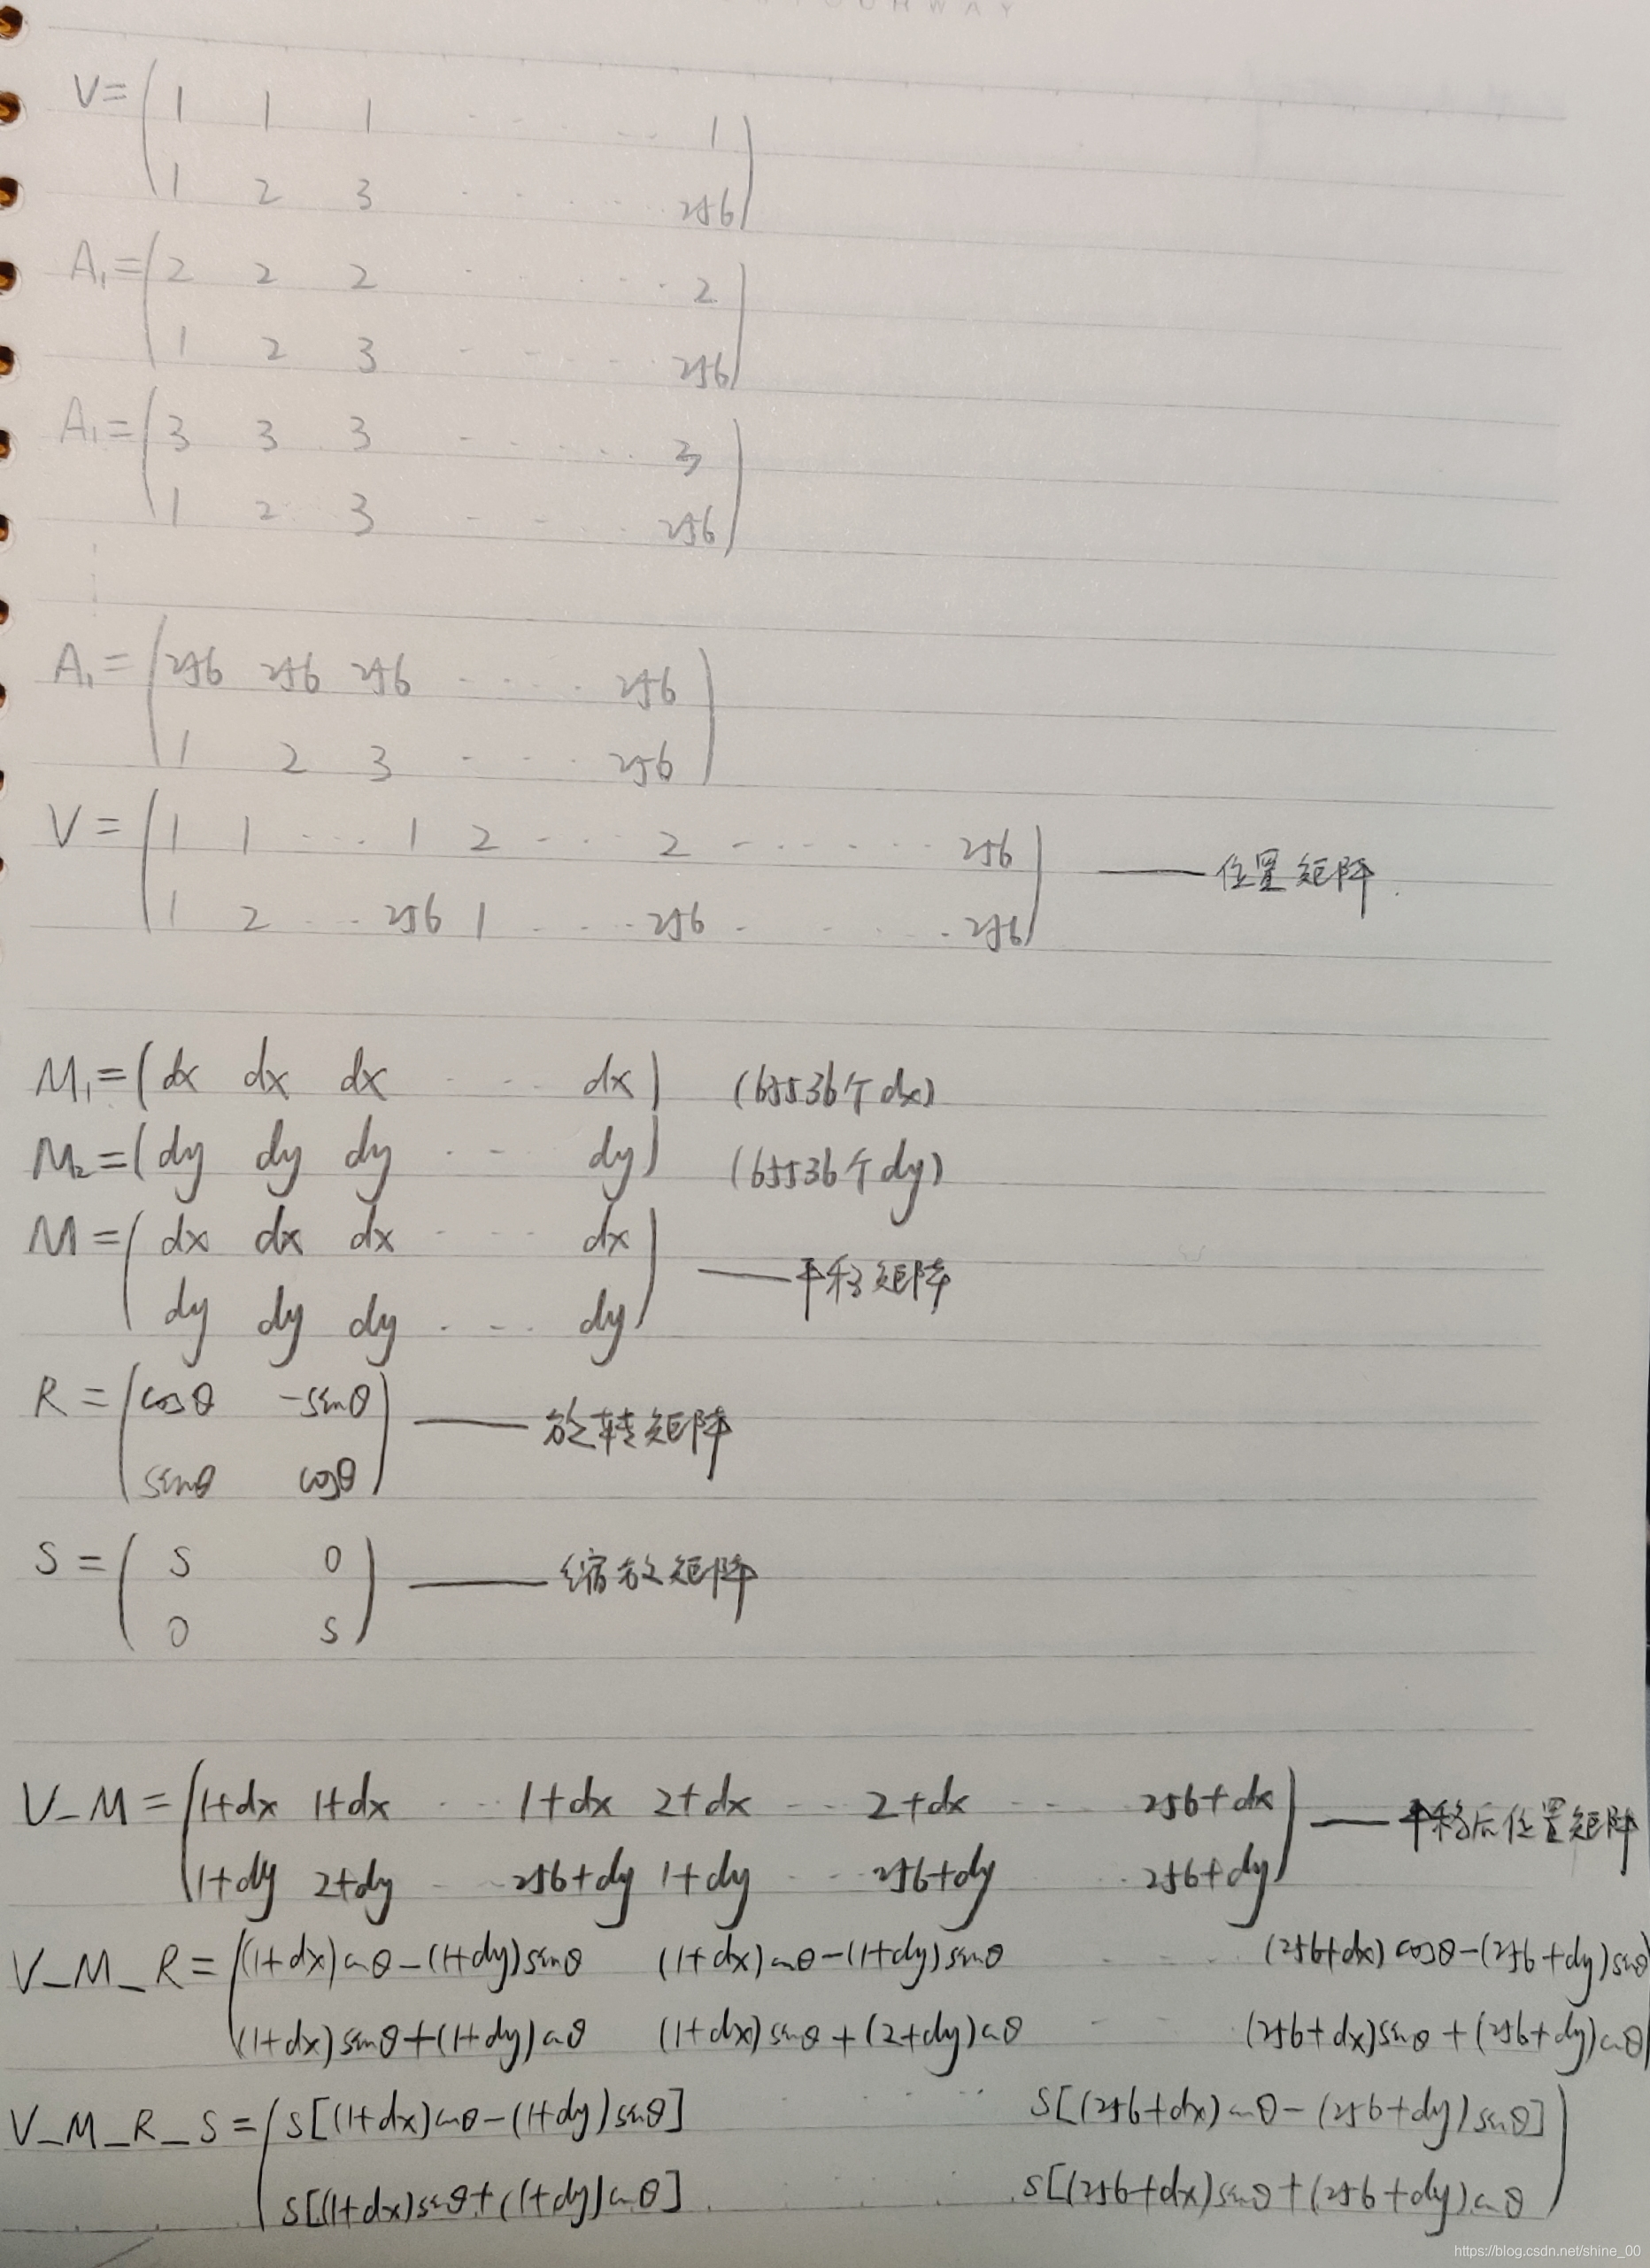 V= ( 1 1 1 ...... 1 )
( 1 2 3 ...... 256 )
A₁= ( 2 2 2 ...... 2 )
( 1 2 3 ...... 256 )
A₁= ( 3 3 3 ...... 3 )
( 1 2 3 ...... 256 )
A₁= ( 256 256 256 ...... 256 )
( 1 2 3 ...... 256 )
V= ( 1 1 ... 1 2 ... 2 ...... 256 ) —— 位置矩阵.
( 1 2 ... 256 1 ... 256 ...... 256 )
M₁=( dx dx dx ... dx ) (65536个dx)
M₂=( dy dy dy ... dy ) (65536个dy)
M= ( dx dx dx ... dx ) —— 平移矩阵
( dy dy dy ... dy )
R= ( cosθ -sinθ ) —— 旋转矩阵
( sinθ cosθ )
S= ( S 0 ) —— 缩放矩阵
( 0 S )
V_M= ( 1+dx 1+dx ... 1+dx 2+dx ... 2+dx ... 256+dx ) —— 平移后位置矩阵
( 1+dy 2+dy ... 256+dy 1+dy ... 256+dy ... 256+dy )
V_M_R= ( (1+dx)cosθ-(1+dy)sinθ (1+dx)cosθ-(1+dy)sinθ ... (256+dx)cosθ-(256+dy)sinθ )
( (1+dx)sinθ+(1+dy)cosθ (1+dx)sinθ+(2+dy)cosθ ... (256+dx)sinθ+(256+dy)cosθ )
V_M_R_S= ( S[(1+dx)cosθ-(1+dy)sinθ] ...... S[(256+dx)cosθ-(256+dy)sinθ] )
( S[(1+dx)sinθ+(1+dy)cosθ] ...... S[(256+dx)sinθ+(256+dy)cosθ )
https://blog.csdn.net/shine_00